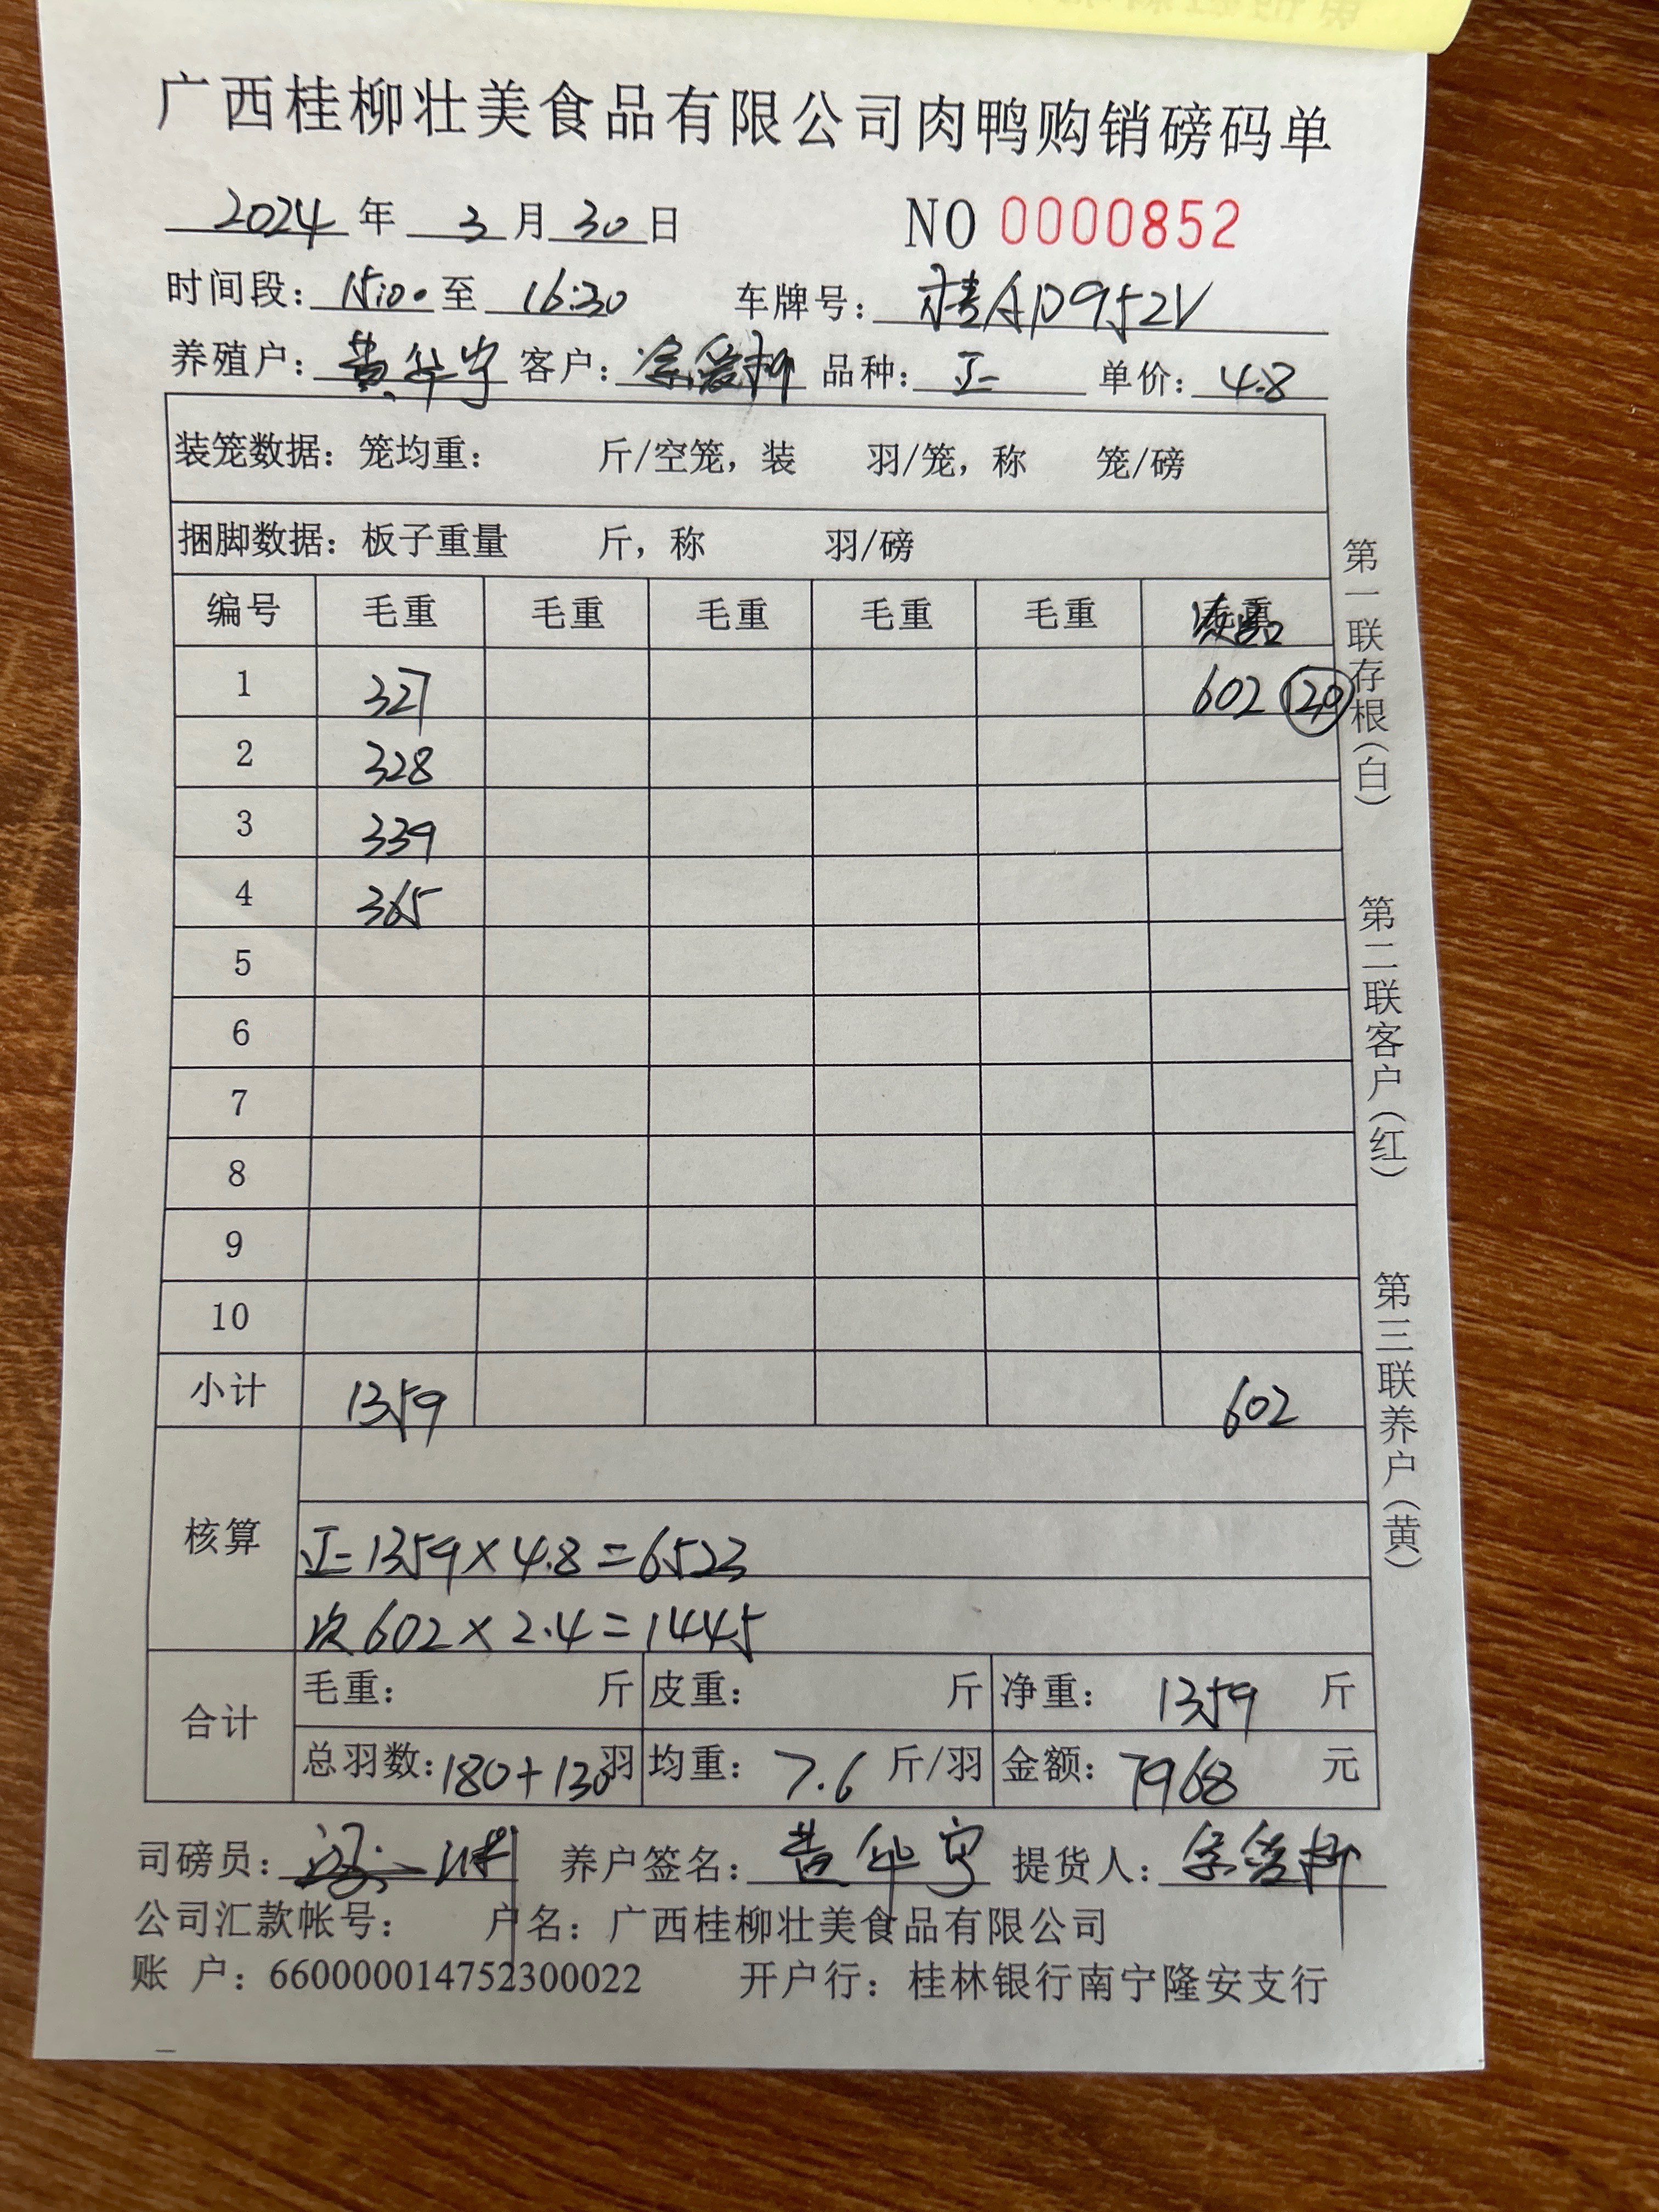 广西桂柳壮美食品有限公司肉鸭购销磅码单
2024 年 3 月 30 日 NO 0000852
时间段: 15:00 至 16:30 车牌号: 桂AD952V
养殖户: 黄华宁 客户: 品种: 正 单价: 4.8
装笼数据: 笼均重: 斤/空笼, 装 羽/笼, 称 笼/磅
捆脚数据: 板子重量 斤, 称 羽/磅
编号 毛重 毛重 毛重 毛重 毛重
1 327 602
2 328
3 339
4 365
5
6
7
8
9
10
小计 1359 602
核算
正=1359×4.8=6523
次 602×2.4=1445
合计 毛重: 斤 皮重: 斤 净重: 1359 斤
总羽数: 180+130羽 均重: 7.6 斤/羽 金额: 7968 元
司磅员: 养户签名: 黄华宁 提货人:
公司汇款帐号: 户名: 广西桂柳壮美食品有限公司
账 户: 660000014752300022 开户行: 桂林银行南宁隆安支行
第一联存根(白)
第二联客户(红)
第三联养户(黄)